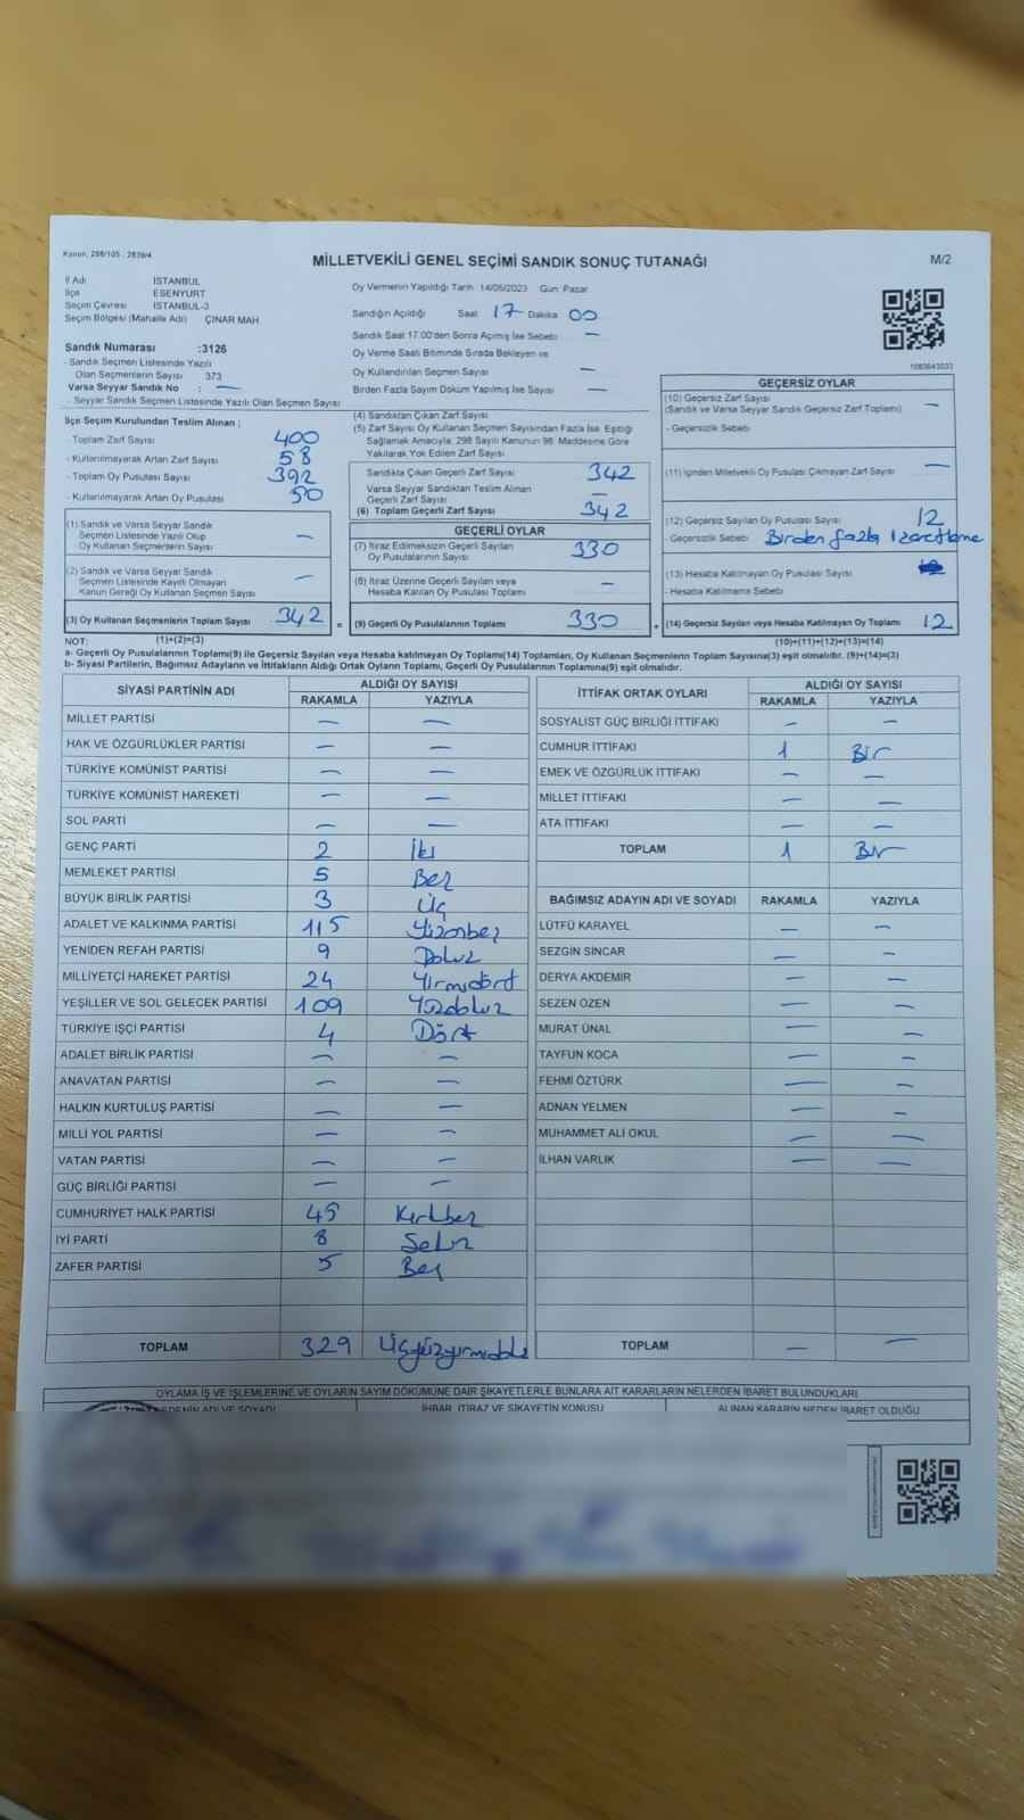 Kanun: 298/105 - 2839/4
MİLLETVEKİLİ GENEL SEÇİMİ SANDIK SONUÇ TUTANAĞI
M/2
İl Adı İSTANBUL
İlçe ESENYURT
Seçim Çevresi İSTANBUL-3
Seçim Bölgesi (Mahalle Adı) ÇINAR MAH
Oy Vermenin Yapıldığı Tarih: 14/05/2023 Gün: Pazar
Sandığın Açıldığı Saat 17 Dakika 00
Sandık Saat 17.00'den Sonra Açılmış İse Sebebi —
Oy Verme Saati Bitiminde Sırada Bekleyen ve
Oy Kullandırılan Seçmen Sayısı —
Birden Fazla Sayım Döküm Yapılmış İse Sayısı —
Sandık Numarası :3126
- Sandık Seçmen Listesinde Yazılı
Olan Seçmenlerin Sayısı 373
Varsa Seyyar Sandık No : —
Seyyar Sandık Seçmen Listesinde Yazılı Olan Seçmen Sayısı
İlçe Seçim Kurulundan Teslim Alınan :
Toplam Zarf Sayısı 400
- Kullanılmayarak Artan Zarf Sayısı 58
- Toplam Oy Pusulası Sayısı 392
- Kullanılmayarak Artan Oy Pusulası 50
(1) Sandık ve Varsa Seyyar Sandık
Seçmen Listesinde Yazılı Olup
Oy Kullanan Seçmenlerin Sayısı —
(2) Sandık ve Varsa Seyyar Sandık
Seçmen Listesinde Kayıtlı Olmayan
Kanun Gereği Oy Kullanan Seçmen Sayısı —
(3) Oy Kullanan Seçmenlerin Toplam Sayısı 342 =
(4) Sandıktan Çıkan Zarf Sayısı
(5) Zarf Sayısı Oy Kullanan Seçmen Sayısından Fazla İse, Eşitliği
Sağlamak Amacıyla, 298 Sayılı Kanunun 98. Maddesine Göre
Yakılarak Yok Edilen Zarf Sayısı
Sandıkta Çıkan Geçerli Zarf Sayısı 342
Varsa Seyyar Sandıktan Teslim Alınan
Geçerli Zarf Sayısı —
(6) Toplam Geçerli Zarf Sayısı 342
GEÇERLİ OYLAR
(7) İtiraz Edilmeksizin Geçerli Sayılan
Oy Pusulalarının Sayısı 330
(8) İtiraz Üzerine Geçerli Sayılan veya
Hesaba Katılan Oy Pusulası Toplamı —
(9) Geçerli Oy Pusulalarının Toplamı 330 +
GEÇERSİZ OYLAR
(10) Geçersiz Zarf Sayısı
(Sandık ve Varsa Seyyar Sandık Geçersiz Zarf Toplamı) —
- Geçersizlik Sebebi
(11) İçinden Milletvekili Oy Pusulası Çıkmayan Zarf Sayısı —
(12) Geçersiz Sayılan Oy Pusulası Sayısı 12
- Geçersizlik Sebebi Birden fazla
(13) Hesaba Katılmayan Oy Pusulası Sayısı
- Hesaba Katılmama Sebebi
(14) Geçersiz Sayılan veya Hesaba Katılmayan Oy Toplamı 12
NOT: (1)+(2)=(3) (10)+(11)+(12)+(13)=(14)
a- Geçerli Oy Pusulalarının Toplamı(9) ile Geçersiz Sayılan veya Hesaba katılmayan Oy Toplamı(14) Toplamları, Oy Kullanan Seçmenlerin Toplam Sayısına(3) eşit olmalıdır. (9)+(14)=(3)
b- Siyasi Partilerin, Bağımsız Adayların ve İttifakların Aldığı Ortak Oyların Toplamı, Geçerli Oy Pusulalarının Toplamına(9) eşit olmalıdır.
SİYASİ PARTİNİN ADI ALDIĞI OY SAYISI
RAKAMLA YAZIYLA
MİLLET PARTİSİ — —
HAK VE ÖZGÜRLÜKLER PARTİSİ — —
TÜRKİYE KOMÜNİST PARTİSİ — —
TÜRKİYE KOMÜNİST HAREKETİ — —
SOL PARTİ — —
GENÇ PARTİ 2 İki
MEMLEKET PARTİSİ 5 Beş
BÜYÜK BİRLİK PARTİSİ 3 Üç
ADALET VE KALKINMA PARTİSİ 115 Yüzonbeş
YENİDEN REFAH PARTİSİ 9 Dokuz
MİLLİYETÇİ HAREKET PARTİSİ 24 Yirmidört
YEŞİLLER VE SOL GELECEK PARTİSİ 109 Yüzdokuz
TÜRKİYE İŞÇİ PARTİSİ 4 Dört
ADALET BİRLİK PARTİSİ — —
ANAVATAN PARTİSİ — —
HALKIN KURTULUŞ PARTİSİ — —
MİLLİ YOL PARTİSİ — —
VATAN PARTİSİ — —
GÜÇ BİRLİĞİ PARTİSİ — —
CUMHURİYET HALK PARTİSİ 45 Kırkbeş
İYİ PARTİ 8 Sekiz
ZAFER PARTİSİ 5 Beş
TOPLAM 329
İTTİFAK ORTAK OYLARI ALDIĞI OY SAYISI
RAKAMLA YAZIYLA
SOSYALİST GÜÇ BİRLİĞİ İTTİFAKI — —
CUMHUR İTTİFAKI 1 Bir
EMEK VE ÖZGÜRLÜK İTTİFAKI — —
MİLLET İTTİFAKI — —
ATA İTTİFAKI — —
TOPLAM 1 Bir
BAĞIMSIZ ADAYIN ADI VE SOYADI RAKAMLA YAZIYLA
LÜTFÜ KARAYEL — —
SEZGİN SİNCAR — —
DERYA AKDEMİR — —
SEZEN ÖZEN — —
MURAT ÜNAL — —
TAYFUN KOCA — —
FEHMİ ÖZTÜRK — —
ADNAN YELMEN — —
MUHAMMET ALİ OKUL — —
İLHAN VARLIK — —
TOPLAM — —
OYLAMA İŞ VE İŞLEMLERİNE VE OYLARIN SAYIM DÖKÜMÜNE DAİR ŞİKAYETLERLE BUNLARA AİT KARARLARIN NELERDEN İBARET BULUNDUKLARI
ADI VE SOYADI İHBAR, İTİRAZ VE ŞİKAYETİN KONUSU ALINAN KARARIN NEDEN İBARET OLDUĞU